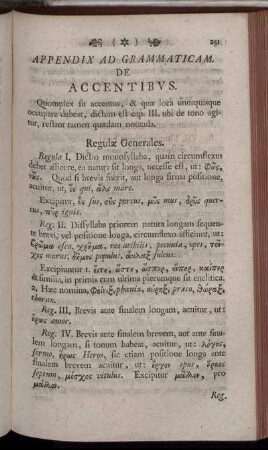 ( ✻ ) 251
APPENDIX AD GRAMMATICAM.
DE
ACCENTIBVS.
Quotuplex sit accentus, & quæ loca unusquisque
occupare debeat, dictum est cap. III. ubi de tono agi-
tur, restant tamen quædam notanda.
Regulæ Generales.
Regula I. Dictio monosyllaba, quam circumflexus
debet afficere, ea natura sit longa, necesse est, ut: Φῶς,
Quod si brevis fuerit, aut longa sirmu positione,
acuitur, ut, mare.
Excipitur, sus, porcus, μῦς mus, quer-
cus, πῦρ ignis.
Reg. II. Dissyllaba priorem natura longam sequen-
te brevi, vel positione longa, circumflexo afficiunt, ut:
esca, pecunia, opes, τεῖ-
χος murus, δῆμος populus,
Excipiuntur 1. εἴτε, ὥστε, ὥσπερ, εἴπερ, καίπερ
& similia, in primis cum ultima pleramque sit enclitica.
2. Hæc nomina, præco,
thorax.
Reg. III. Brevis ante finalem longam, acuitur, ut:
ἔρως amor.
Reg. IV. Brevis ante finalem brevem, aut ante fina-
lem longam, si tonum habeat, acuitur, ut: λόγος,
sermo, Heros, sic etiam positione longa ante
finalem brevem acuitur, ut: ἔργον opus, ἕρκος
septum, μόσχος vitulus. Excipitur pro
Reg.